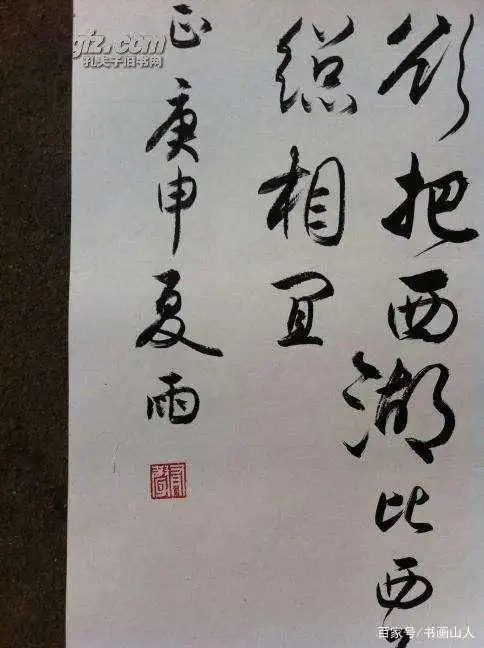 欲把西湖比西
總相宜
正 庚申夏雨
孔夫子旧书网
百家号/书画山人